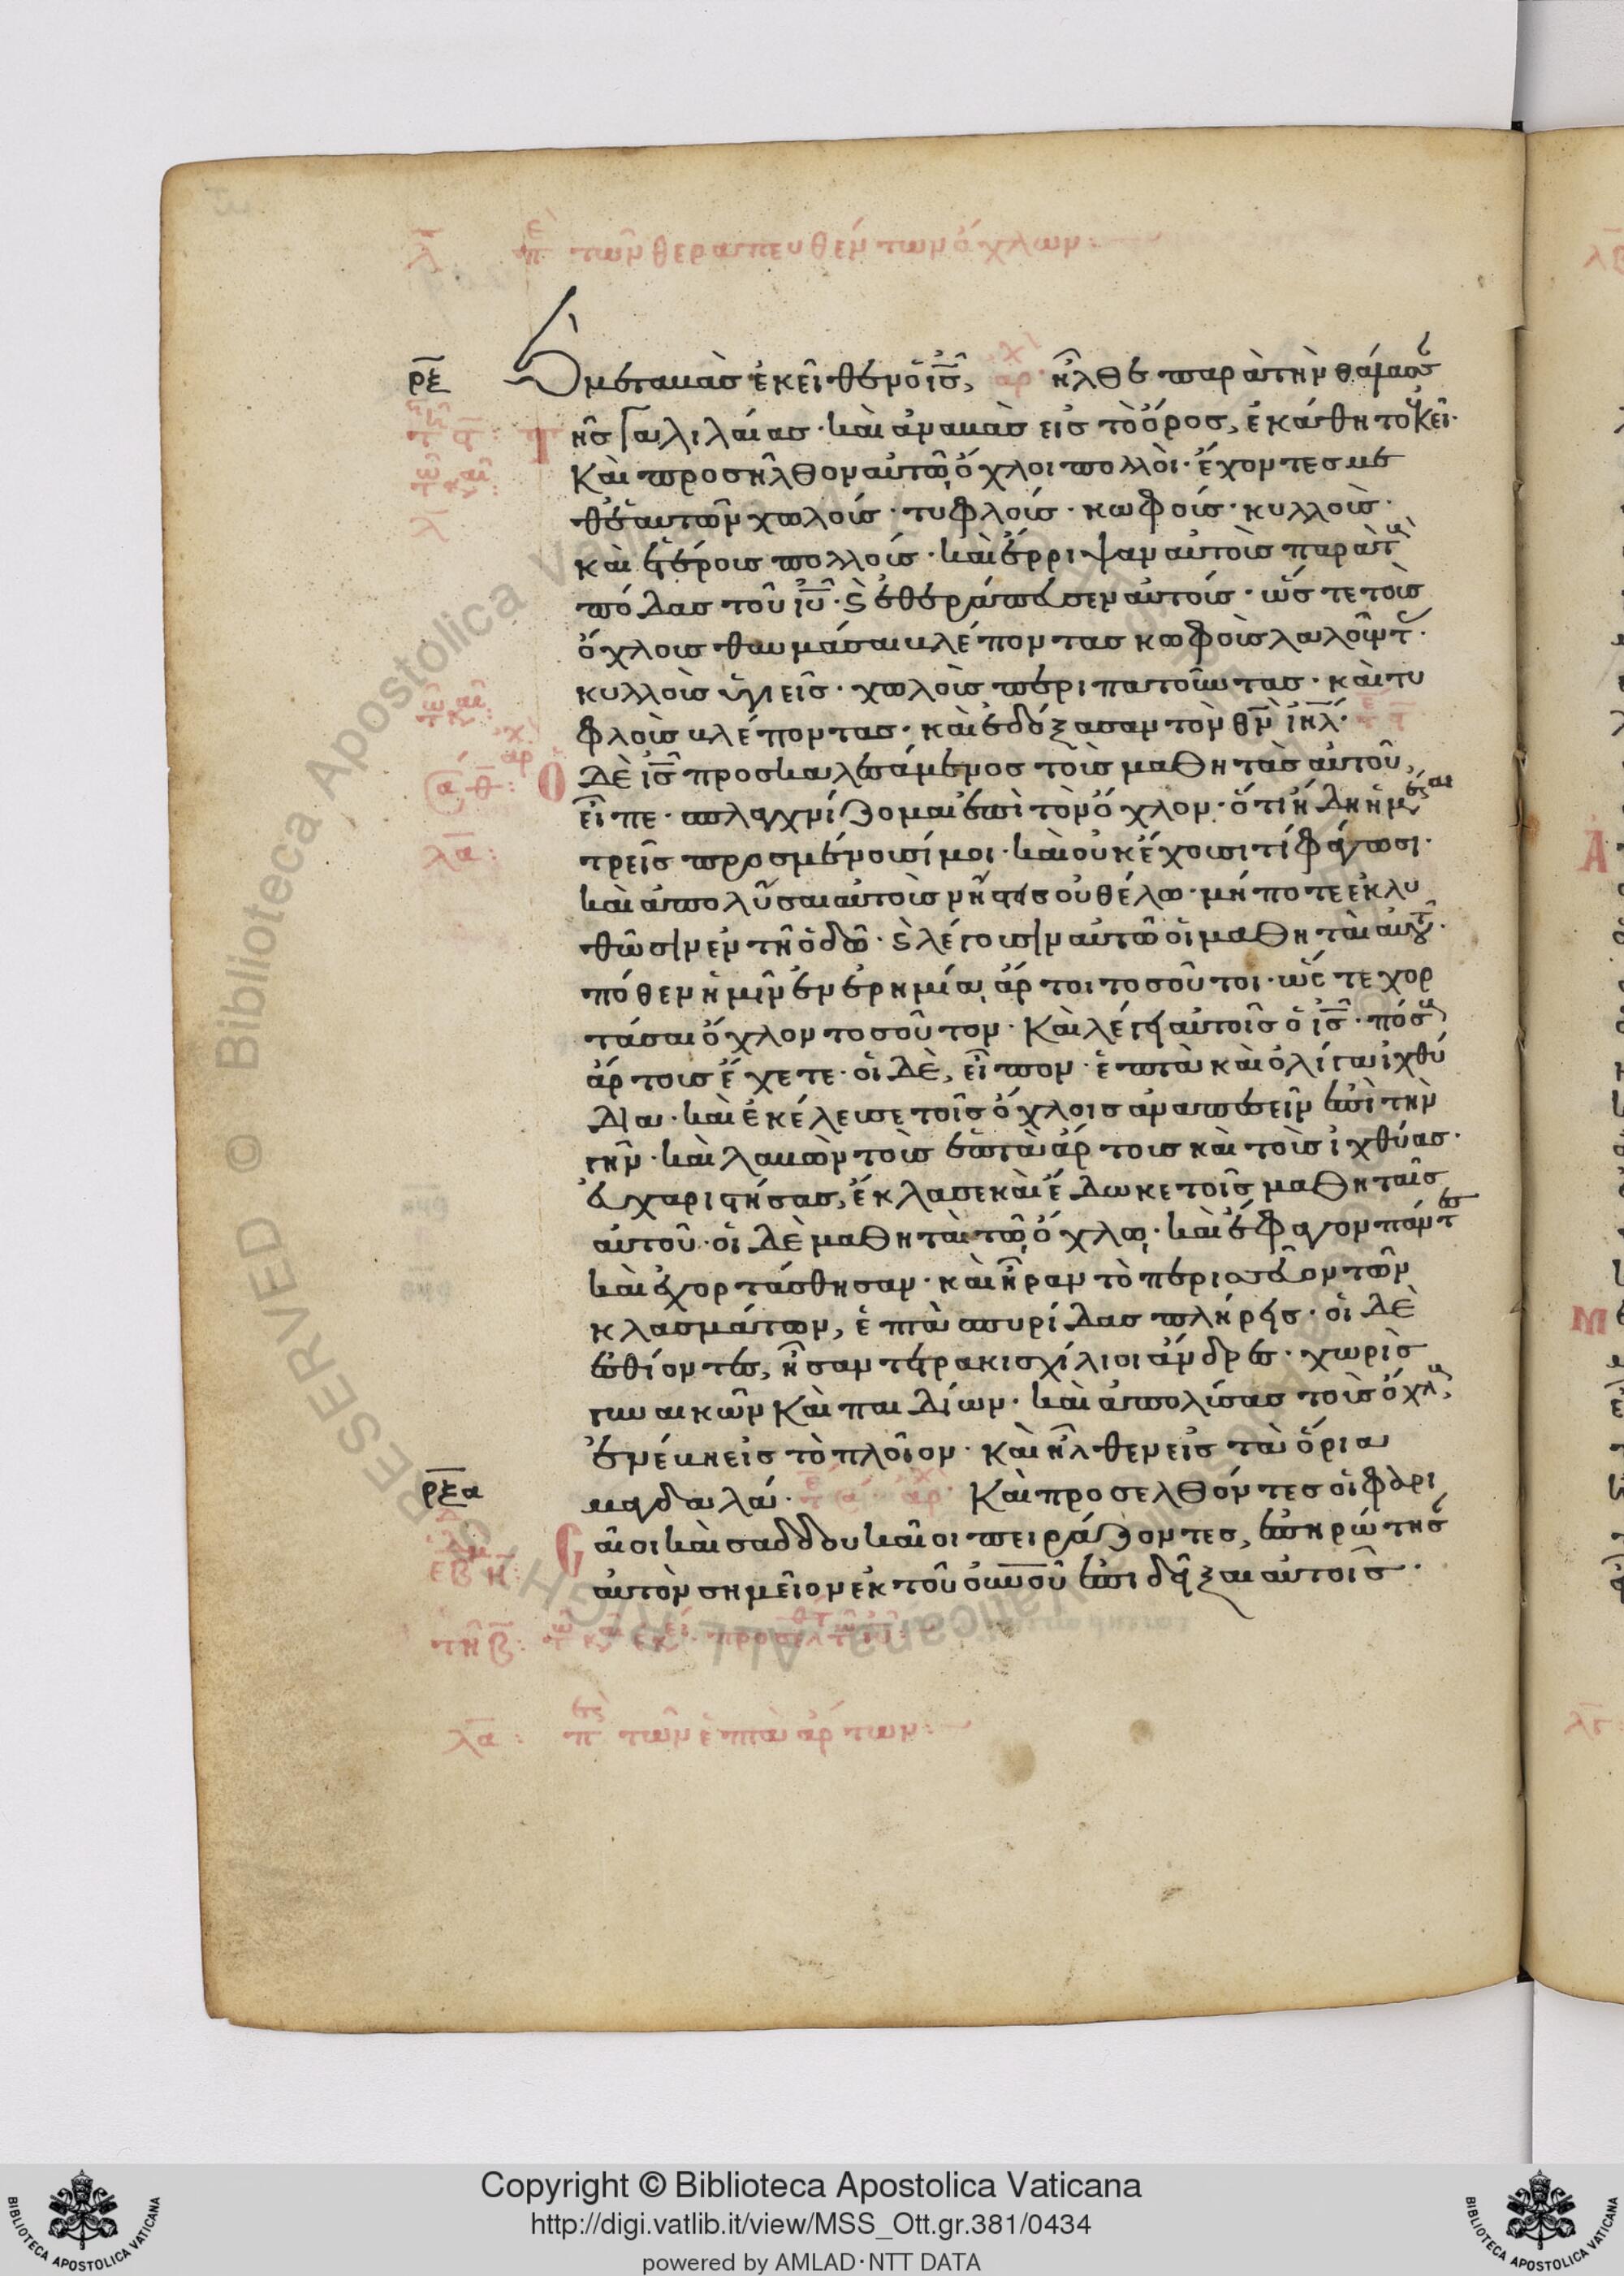 λ̅ πε τῶν θεραπευθέντων ὄχλων:
ρ̅ξ̅ Καὶ μεταβὰς ἐκεῖθεν ὁ ι̅ς̅, ἦλθε παρὰ τὴν θάλασσ
τῆς Γαλιλαίας· καὶ ἀναβὰς εἰς τὸ ὄρος, ἐκάθητο ἐκεῖ·
Καὶ προσῆλθον αὐτῶ ὄχλοι πολλοὶ· ἔχοντες με
θ᾽ ἑαυτῶν χωλούς· τυφλούς· κωφούς· κυλλοὺς·
καὶ ἑτέρους πολλούς· καὶ ἔρριψαν αὐτοὺς παρὰ τ
πόδας τοῦ ι̅υ̅· ϗ ἐθεράπευσεν αὐτούς· ὥστε τοὺς
ὄχλους θαυμάσαι βλέποντας κωφοὺς λαλοῦντ·
κυλλοὺς ὑγιεῖς· χωλοὺς περιπατοῦντας· καὶ τυ
φλοὺς βλέποντας· καὶ ἐδόξασαν τὸν θ̅ν̅ ι̅η̅λ̅·
Ὁ δὲ ι̅ς̅ προσκαλεσάμενος τοὺς μαθητὰς αὐτοῦ,
εἶπε· σπλαγχνίζομαι ἐπὶ τὸν ὄχλον· ὅτι ἤδη ἡμέραι
τρεῖς προσμένουσί μοι· καὶ οὐκ ἔχουσι τί φάγωσι·
καὶ ἀπολῦσαι αὐτοὺς νήστεις οὐ θέλω· μήποτε ἐκλυ
θῶσιν ἐν τῆ ὁδῶ· ϗ λέγουσιν αὐτῶ οἱ μαθηταὶ αὐτοῦ·
πόθεν ἡμῖν ἐν ἐρημία ἄρτοι τοσοῦτοι· ὥστε χορ
τάσαι ὄχλον τοσοῦτον· Καὶ λέγει αὐτοῖς ὁ ι̅ς̅· πόσ
ἄρτους ἔχετε· οἱ δὲ, εἶπον· ἑπτὰ καὶ ὀλίγα ἰχθύ
δια· καὶ ἐκέλευσε τοῖς ὄχλοις ἀναπεσεῖν ἐπὶ τὴν
γῆν· καὶ λαβὼν τοὺς ἑπτὰ ἄρτους καὶ τοὺς ἰχθύας·
εὐχαριστήσας, ἔκλασε καὶ ἔδωκε τοῖς μαθηταῖς
αὐτοῦ· οἱ δὲ μαθηταὶ τῶ ὄχλω· καὶ ἔφαγον πάντες
καὶ ἐχορτάσθησαν· καὶ ἦραν τὸ περισσεῦον τῶν
κλασμάτων, ἑπτὰ σπυρίδας πλήρεις· οἱ δὲ
ἐσθίοντες, ἦσαν τετρακισχίλιοι ἄνδρες· χωρὶς
γυναικῶν Καὶ παιδίων· καὶ ἀπολύσας τοὺς ὄχλ,
ἐνέβη εἰς τὸ πλοῖον· καὶ ἦλθεν εἰς τὰ ὅρια
ρ̅ξ̅α̅ μαγδαλά· Καὶ προσελθόντες οἱ φαρι
σαῖοι καὶ σαδδουκαῖοι πειράζοντες, ἐπηρώτησ
αὐτὸν σημεῖον ἐκ τοῦ ο̅υ̅ν̅ο̅ῦ ἐπιδεῖξαι αὐτοῖς·
λ̅α̅: π τῶν ἑπτὰ ἄρτων:
Copyright © Biblioteca Apostolica Vaticana
http://digi.vatlib.it/view/MSS_Ott.gr.381/0434
powered by AMLAD·NTT DATA